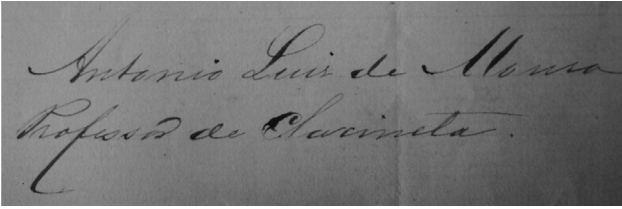 Antonio Luis de Moura
Professor de Clarineta.